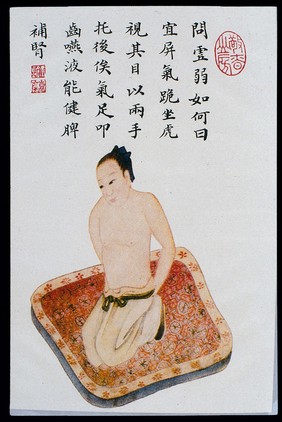 問虛弱如何曰
宜屏氣跪坐虎
視其目以兩手
托後俟氣足叩
齒嚥波能健脾
補腎